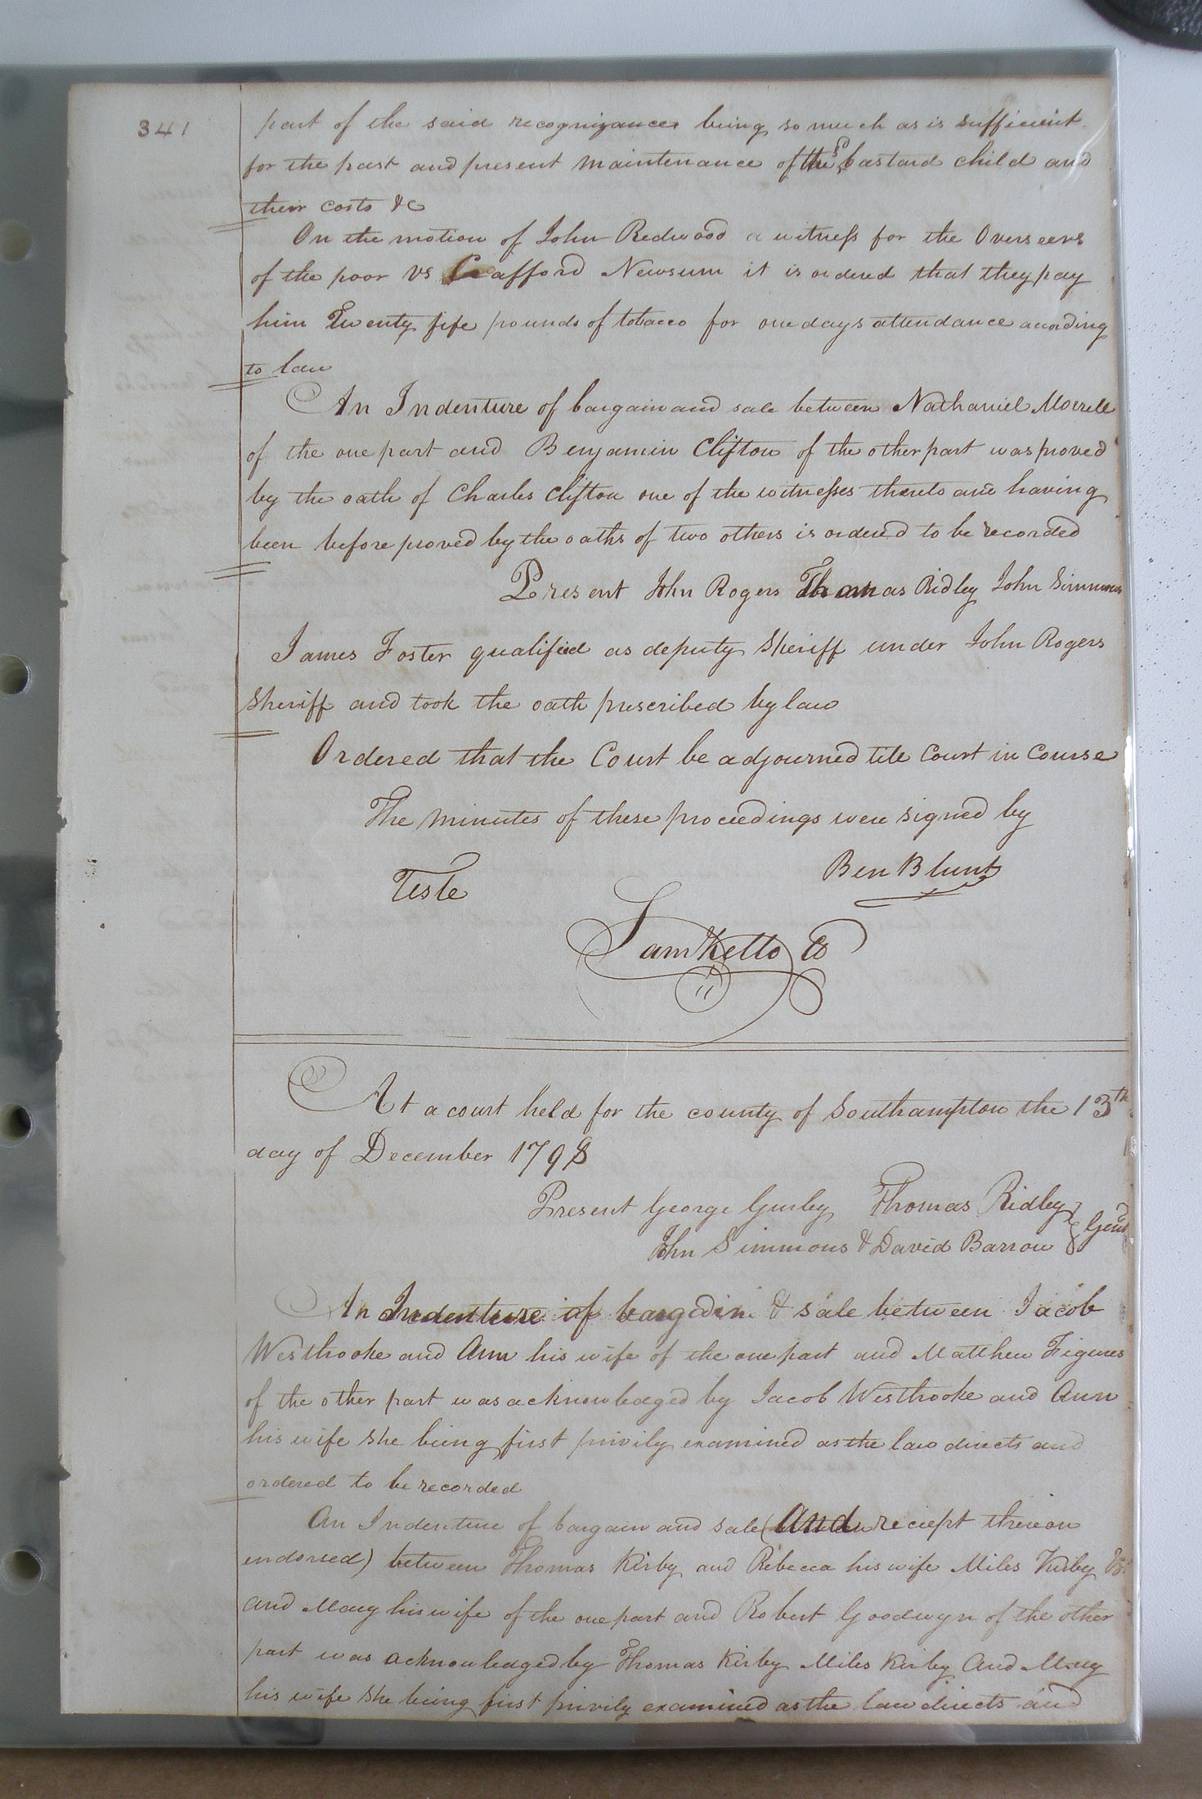 341
part of the said recognizances being so much as is sufficient
for the past and present maintenance of the sd bastard child and
their costs &c
On the motion of John Redwood a witness for the Overseers
of the poor vs Crafford Newsum it is ordered that they pay
him Twenty fife pounds of tobacco for one days attendance acording
to law
An Indenture of bargain and sale between Nathaniel Morrell
of the one part and Benjamin Clifton of the other part was proved
by the oath of Charles Clifton one of the witnesses thereto and having
been before proved by the oaths of two others is ordered to be recorded
Present John Rogers Thomas Ridley John Simmons
James Foster qualified as deputy Sheriff under John Rogers
Sheriff and took the oath prescribed by law
Ordered that the Court be adjourned till Court in Course
The minutes of these proceedings were signed by
Ben Blunt
Teste
Sam Kello
At a court held for the county of Southampton the 13th
day of December 1798
Present George Gurley Thomas Ridley
John Simmons & David Barrow } Gent
An Indenture of bargain & sale between Jacob
Westbrooke and Ann his wife of the one part and Matthew Figures
of the other part was acknowledged by Jacob Westbrooke and Ann
his wife she being first privily examined as the law directs and
ordered to be recorded
An Indenture of bargain and sale (and reciept thereon
endorsed) between Thomas Kirby and Rebecca his wife Miles Kirby
and Mary his wife of the one part and Robert Goodwyn of the other
part was acknowledged by Thomas Kirby Miles Kirby And Mary
his wife she being first privily examined as the law directs and